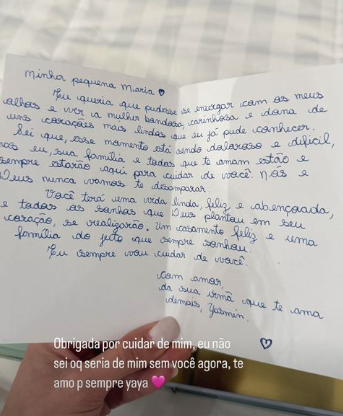 Minha pequena Maria ♡
Eu queria que pudesse se enxergar com os meus
olhos e ver a mulher bondosa, carinhosa e dona de
uns corações mais lindos que eu já pude conhecer.
Sei que, esse momento está sendo doloroso e difícil,
mas eu, sua família e todos que te amam estão e
sempre estarão aqui para cuidar de você. Nós e
Deus nunca vamos te desamparar.
Você terá uma vida linda, feliz e abençoada,
e todos os sonhos que Deus plantou em seu
coração, se realizarão. Um casamento feliz e uma
família do jeito que sempre sonhou
Eu sempre vou cuidar de você.
com amor
da sua irmã que te ama
demais, Yasmin.
♡
Obrigada por cuidar de mim, eu não
sei oq seria de mim sem você agora, te
amo p sempre yaya 🩷